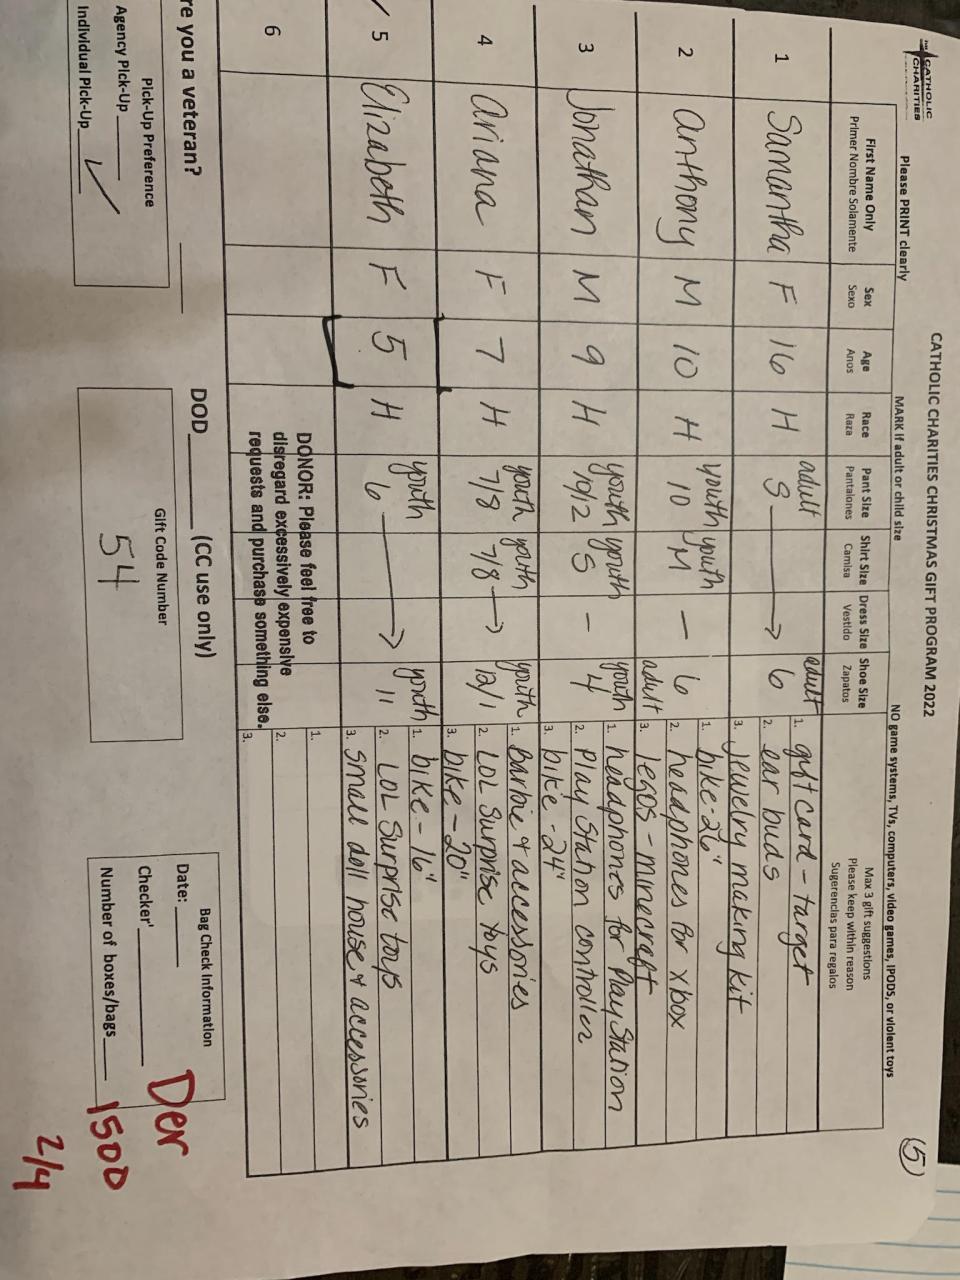 CATHOLIC CHARITIES
CATHOLIC CHARITIES CHRISTMAS GIFT PROGRAM 2022
5
Please PRINT clearly MARK if adult or child size NO game systems, TVs, computers, video games, IPODS, or violent toys
First Name Only Sex Age Race Pant Size Shirt Size Dress Size Shoe Size Max 3 gift suggestions
Primer Nombre Solamente Sexo Anos Raza Pantalones Camisa Vestido Zapatos Please keep within reason
Sugerencias para regalos
adult adult 1. gift card - target
1 Samantha F 16 H S → 6 2. ear buds
3. Jewelry making kit
youth youth 1. bike - 26"
2 Anthony M 10 H 10 M - 6 2. headphones for xbox
adult 3. legos - minecraft
youth youth youth 1. headphones for PlayStation
3 Jonathan M 9 H 10/12 S - 4 2. Play Station controller
3. bike - 24"
youth youth youth 1. Barbie & accessories
4 Ariana F 7 H 7/8 7/8 → 12/1 2. LOL Surprise toys
3. bike - 20"
youth youth 1. bike - 16"
5 Elizabeth F 5 H 6 → 11 2. LOL Surprise toys
3. small doll house & accessories
6 1.
2.
3.
DONOR: Please feel free to
disregard excessively expensive
requests and purchase something else.
re you a veteran? DOD (CC use only)
Pick-Up Preference
Agency Pick-Up
Individual Pick-Up ✓
Gift Code Number
54
Bag Check Information
Date:
Checker'
Number of boxes/bags
Der
1500
2/4